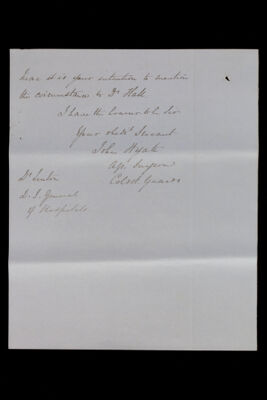 hear it is your intention to mention
the circumstance to Dr Hall
I have the honour to be Sir
Your obedt Servant
John Wyatt
Asst Surgeon
Coldm Guards
Dr Linton
D. I. General
of Hospitals